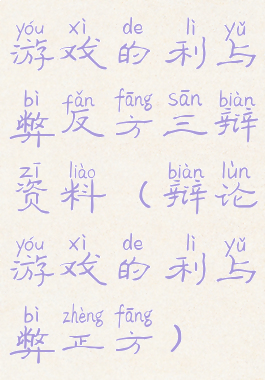 yóu xì de lì yǔ
游戏的利与
bì fǎn fāng sān biàn
弊反方三辩
zī liào biàn lùn
资料（辩论
yóu xì de lì yǔ
游戏的利与
bì zhèng fāng
弊正方）